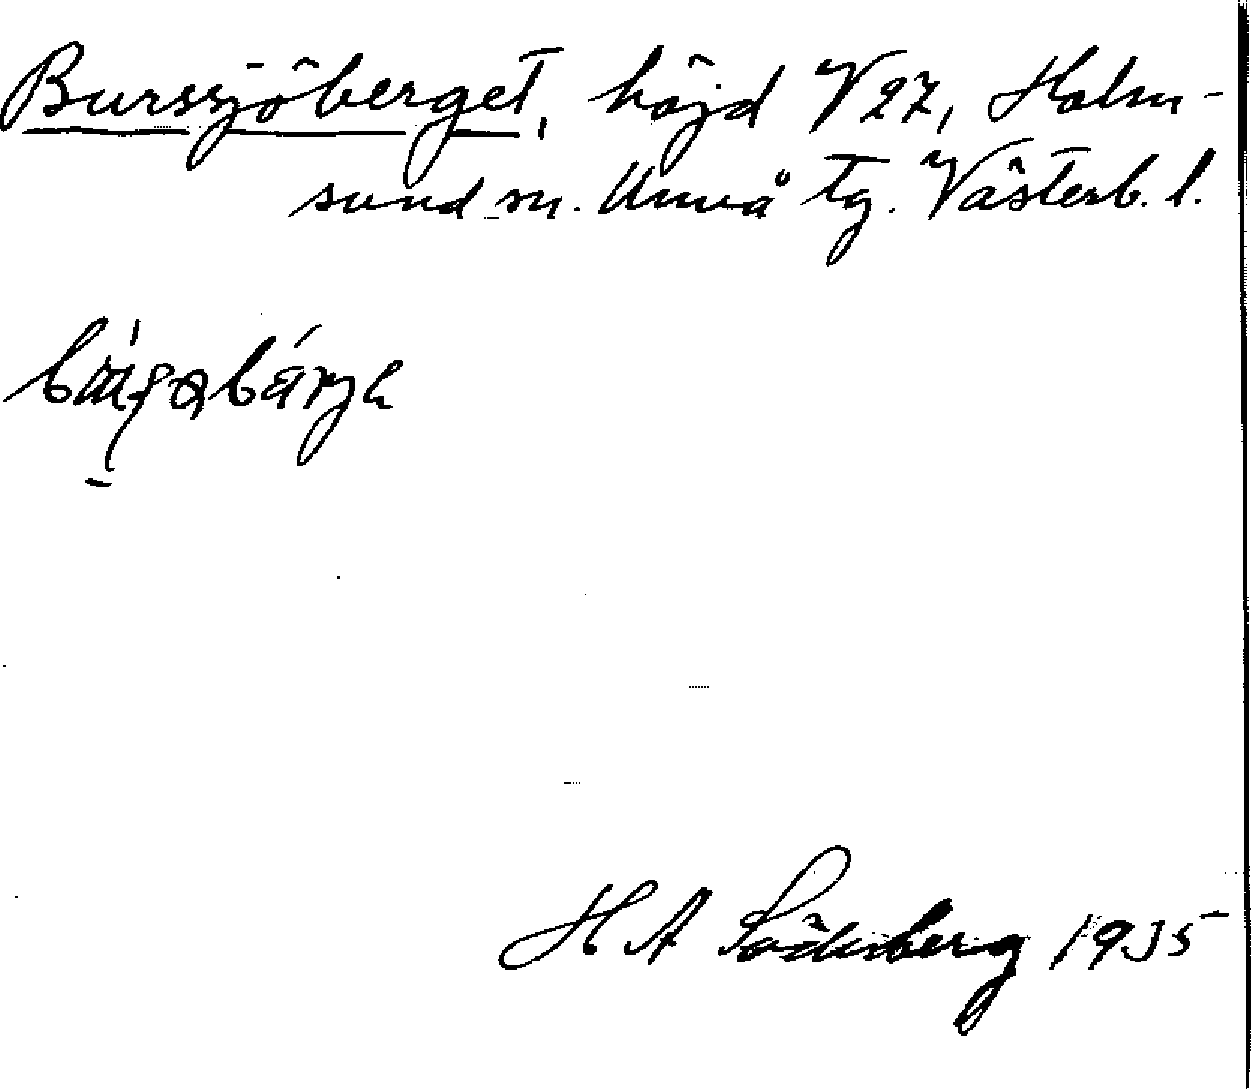 Burssjöberget, höjd V 27, Holm-
sund sn. Umeå tg. Västerb. l.
H A Söderberg 1935